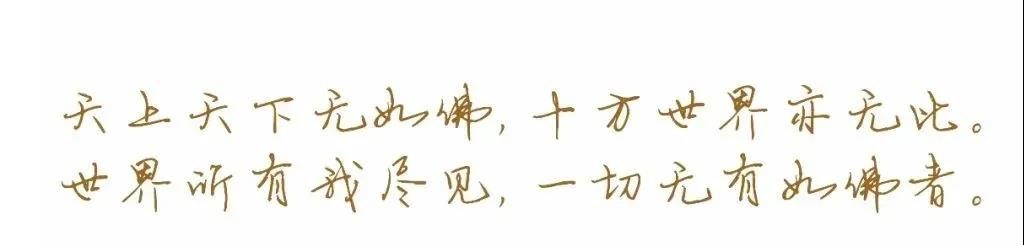 天上天下无如佛,十方世界亦无比。
世界所有我尽见,一切无有如佛者。